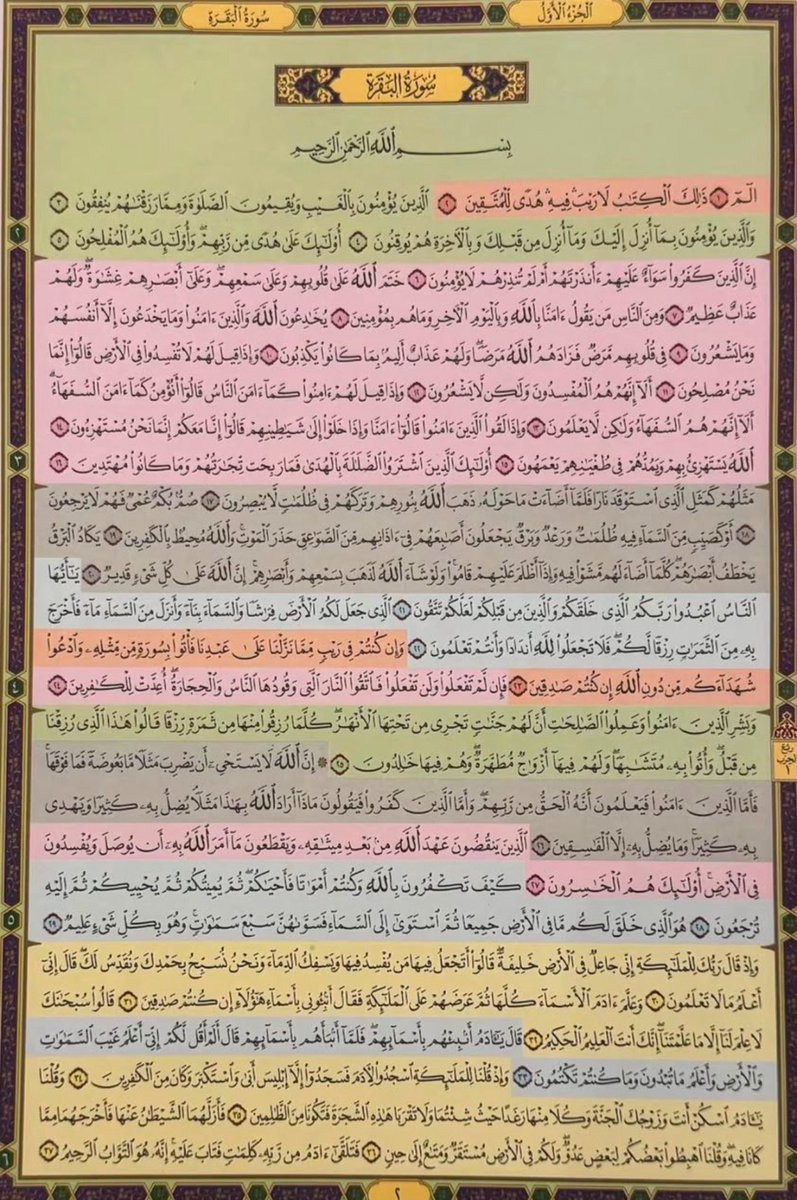 الجُزْءُ الْأَوَّلُ
سُورَةُ الْبَقَرَةِ
سُورَةُ الْبَقَرَةِ
بِسْمِ اللَّهِ الرَّحْمَٰنِ الرَّحِيمِ
الٓمٓ ١ ذَٰلِكَ الْكِتَٰبُ لَا رَيْبَ ۛ فِيهِ ۛ هُدًى لِّلْمُتَّقِينَ ٢ الَّذِينَ يُؤْمِنُونَ بِالْغَيْبِ وَيُقِيمُونَ الصَّلَوٰةَ وَمِمَّا رَزَقْنَٰهُمْ يُنفِقُونَ ٣
وَالَّذِينَ يُؤْمِنُونَ بِمَآ أُنزِلَ إِلَيْكَ وَمَآ أُنزِلَ مِن قَبْلِكَ وَبِالْءَاخِرَةِ هُمْ يُوقِنُونَ ٤ أُوْلَٰٓئِكَ عَلَىٰ هُدًى مِّن رَّبِّهِمْ ۖ وَأُوْلَٰٓئِكَ هُمُ الْمُفْلِحُونَ ٥
إِنَّ الَّذِينَ كَفَرُوا۟ سَوَآءٌ عَلَيْهِمْ ءَأَنذَرْتَهُمْ أَمْ لَمْ تُنذِرْهُمْ لَا يُؤْمِنُونَ ٦ خَتَمَ اللَّهُ عَلَىٰ قُلُوبِهِمْ وَعَلَىٰ سَمْعِهِمْ ۖ وَعَلَىٰٓ أَبْصَٰرِهِمْ غِشَٰوَةٌ ۖ وَلَهُمْ
عَذَابٌ عَظِيمٌ ٧ وَمِنَ النَّاسِ مَن يَقُولُ ءَامَنَّا بِاللَّهِ وَبِالْيَوْمِ الْءَاخِرِ وَمَا هُم بِمُؤْمِنِينَ ٨ يُخَٰدِعُونَ اللَّهَ وَالَّذِينَ ءَامَنُوا۟ وَمَا يَخْدَعُونَ إِلَّآ أَنفُسَهُمْ
وَمَا يَشْعُرُونَ ٩ فِى قُلُوبِهِم مَّرَضٌ فَزَادَهُمُ اللَّهُ مَرَضًا ۖ وَلَهُمْ عَذَابٌ أَلِيمٌۢ بِمَا كَانُوا۟ يَكْذِبُونَ ١٠ وَإِذَا قِيلَ لَهُمْ لَا تُفْسِدُوا۟ فِى الْأَرْضِ قَالُوٓا۟ إِنَّمَا
نَحْنُ مُصْلِحُونَ ١١ أَلَآ إِنَّهُمْ هُمُ الْمُفْسِدُونَ وَلَٰكِن لَّا يَشْعُرُونَ ١٢ وَإِذَا قِيلَ لَهُمْ ءَامِنُوا۟ كَمَآ ءَامَنَ النَّاسُ قَالُوٓا۟ أَنُؤْمِنُ كَمَآ ءَامَنَ السُّفَهَآءُ ۗ
أَلَآ إِنَّهُمْ هُمُ السُّفَهَآءُ وَلَٰكِن لَّا يَعْلَمُونَ ١٣ وَإِذَا لَقُوا۟ الَّذِينَ ءَامَنُوا۟ قَالُوٓا۟ ءَامَنَّا وَإِذَا خَلَوْا۟ إِلَىٰ شَيَٰطِينِهِمْ قَالُوٓا۟ إِنَّا مَعَكُمْ إِنَّمَا نَحْنُ مُسْتَهْزِءُونَ ١٤
اللَّهُ يَسْتَهْزِئُ بِهِمْ وَيَمُدُّهُمْ فِى طُغْيَٰنِهِمْ يَعْمَهُونَ ١٥ أُوْلَٰٓئِكَ الَّذِينَ اشْتَرَوُا۟ الضَّلَٰلَةَ بِالْهُدَىٰ فَمَا رَبِحَت تِّجَٰرَتُهُمْ وَمَا كَانُوا۟ مُهْتَدِينَ ١٦
مَثَلُهُمْ كَمَثَلِ الَّذِى اسْتَوْقَدَ نَارًا فَلَمَّآ أَضَآءَتْ مَا حَوْلَهُۥ ذَهَبَ اللَّهُ بِنُورِهِمْ وَتَرَكَهُمْ فِى ظُلُمَٰتٍ لَّا يُبْصِرُونَ ١٧ صُمٌّۢ بُكْمٌ عُمْىٌ فَهُمْ لَا يَرْجِعُونَ
١٨ أَوْ كَصَيِّبٍ مِّنَ السَّمَآءِ فِيهِ ظُلُمَٰتٌ وَرَعْدٌ وَبَرْقٌ يَجْعَلُونَ أَصَٰبِعَهُمْ فِىٓ ءَاذَانِهِم مِّنَ الصَّوَٰعِقِ حَذَرَ الْمَوْتِ ۚ وَاللَّهُ مُحِيطٌۢ بِالْكَٰفِرِينَ ١٩ يَكَادُ الْبَرْقُ
يَخْطَفُ أَبْصَٰرَهُمْ ۖ كُلَّمَآ أَضَآءَ لَهُم مَّشَوْا۟ فِيهِ وَإِذَآ أَظْلَمَ عَلَيْهِمْ قَامُوا۟ ۚ وَلَوْ شَآءَ اللَّهُ لَذَهَبَ بِسَمْعِهِمْ وَأَبْصَٰرِهِمْ ۚ إِنَّ اللَّهَ عَلَىٰ كُلِّ شَىْءٍ قَدِيرٌ ٢٠ يَٰٓأَيُّهَا
النَّاسُ اعْبُدُوا۟ رَبَّكُمُ الَّذِى خَلَقَكُمْ وَالَّذِينَ مِن قَبْلِكُمْ لَعَلَّكُمْ تَتَّقُونَ ٢١ الَّذِى جَعَلَ لَكُمُ الْأَرْضَ فِرَٰشًا وَالسَّمَآءَ بِنَآءً وَأَنزَلَ مِنَ السَّمَآءِ مَآءً فَأَخْرَجَ
بِهِۦ مِنَ الثَّمَرَٰتِ رِزْقًا لَّكُمْ ۖ فَلَا تَجْعَلُوا۟ لِلَّهِ أَندَادًا وَأَنتُمْ تَعْلَمُونَ ٢٢ وَإِن كُنتُمْ فِى رَيْبٍ مِّمَّا نَزَّلْنَا عَلَىٰ عَبْدِنَا فَأْتُوا۟ بِسُورَةٍ مِّن مِّثْلِهِۦ وَادْعُوا۟
شُهَدَآءَكُم مِّن دُونِ اللَّهِ إِن كُنتُمْ صَٰدِقِينَ ٢٣ فَإِن لَّمْ تَفْعَلُوا۟ وَلَن تَفْعَلُوا۟ فَاتَّقُوا۟ النَّارَ الَّتِى وَقُودُهَا النَّاسُ وَالْحِجَارَةُ ۖ أُعِدَّتْ لِلْكَٰفِرِينَ ٢٤
وَبَشِّرِ الَّذِينَ ءَامَنُوا۟ وَعَمِلُوا۟ الصَّٰلِحَٰتِ أَنَّ لَهُمْ جَنَّٰتٍ تَجْرِى مِن تَحْتِهَا الْأَنْهَٰرُ ۖ كُلَّمَا رُزِقُوا۟ مِنْهَا مِن ثَمَرَةٍ رِّزْقًا قَالُوا۟ هَٰذَا الَّذِى رُزِقْنَا
مِن قَبْلُ ۖ وَأُتُوا۟ بِهِۦ مُتَشَٰبِهًا ۖ وَلَهُمْ فِيهَآ أَزْوَٰجٌ مُّطَهَّرَةٌ ۖ وَهُمْ فِيهَا خَٰلِدُونَ ٢٥ ۞ إِنَّ اللَّهَ لَا يَسْتَحْىِۦٓ أَن يَضْرِبَ مَثَلًا مَّا بَعُوضَةً فَمَا فَوْقَهَا ۚ
فَأَمَّا الَّذِينَ ءَامَنُوا۟ فَيَعْلَمُونَ أَنَّهُ الْحَقُّ مِن رَّبِّهِمْ ۖ وَأَمَّا الَّذِينَ كَفَرُوا۟ فَيَقُولُونَ مَاذَآ أَرَادَ اللَّهُ بِهَٰذَا مَثَلًا ۘ يُضِلُّ بِهِۦ كَثِيرًا وَيَهْدِى
بِهِۦ كَثِيرًا ۚ وَمَا يُضِلُّ بِهِۦٓ إِلَّا الْفَٰسِقِينَ ٢٦ الَّذِينَ يَنقُضُونَ عَهْدَ اللَّهِ مِنۢ بَعْدِ مِيثَٰقِهِۦ وَيَقْطَعُونَ مَآ أَمَرَ اللَّهُ بِهِۦٓ أَن يُوصَلَ وَيُفْسِدُونَ
فِى الْأَرْضِ ۚ أُوْلَٰٓئِكَ هُمُ الْخَٰسِرُونَ ٢٧ كَيْفَ تَكْفُرُونَ بِاللَّهِ وَكُنتُمْ أَمْوَٰتًا فَأَحْيَٰكُمْ ۖ ثُمَّ يُمِيتُكُمْ ثُمَّ يُحْيِيكُمْ ثُمَّ إِلَيْهِ
تُرْجَعُونَ ٢٨ هُوَ الَّذِى خَلَقَ لَكُم مَّا فِى الْأَرْضِ جَمِيعًا ثُمَّ اسْتَوَىٰٓ إِلَى السَّمَآءِ فَسَوَّىٰهُنَّ سَبْعَ سَمَٰوَٰتٍ ۚ وَهُوَ بِكُلِّ شَىْءٍ عَلِيمٌ ٢٩
وَإِذْ قَالَ رَبُّكَ لِلْمَلَٰٓئِكَةِ إِنِّى جَاعِلٌ فِى الْأَرْضِ خَلِيفَةً ۖ قَالُوٓا۟ أَتَجْعَلُ فِيهَا مَن يُفْسِدُ فِيهَا وَيَسْفِكُ الدِّمَآءَ وَنَحْنُ نُسَبِّحُ بِحَمْدِكَ وَنُقَدِّسُ لَكَ ۖ قَالَ إِنِّىٓ
أَعْلَمُ مَا لَا تَعْلَمُونَ ٣٠ وَعَلَّمَ ءَادَمَ الْأَسْمَآءَ كُلَّهَا ثُمَّ عَرَضَهُمْ عَلَى الْمَلَٰٓئِكَةِ فَقَالَ أَنۢبِـُٔونِى بِأَسْمَآءِ هَٰٓؤُلَآءِ إِن كُنتُمْ صَٰدِقِينَ ٣١ قَالُوا۟ سُبْحَٰنَكَ
لَا عِلْمَ لَنَآ إِلَّا مَا عَلَّمْتَنَآ ۖ إِنَّكَ أَنتَ الْعَلِيمُ الْحَكِيمُ ٣٢ قَالَ يَٰٓـَٔادَمُ أَنۢبِئْهُم بِأَسْمَآئِهِمْ ۖ فَلَمَّآ أَنۢبَأَهُم بِأَسْمَآئِهِمْ قَالَ أَلَمْ أَقُل لَّكُمْ إِنِّىٓ أَعْلَمُ غَيْبَ السَّمَٰوَٰتِ
وَالْأَرْضِ وَأَعْلَمُ مَا تُبْدُونَ وَمَا كُنتُمْ تَكْتُمُونَ ٣٣ وَإِذْ قُلْنَا لِلْمَلَٰٓئِكَةِ اسْجُدُوا۟ لِءَادَمَ فَسَجَدُوٓا۟ إِلَّآ إِبْلِيسَ أَبَىٰ وَاسْتَكْبَرَ وَكَانَ مِنَ الْكَٰفِرِينَ ٣٤ وَقُلْنَا
يَٰٓـَٔادَمُ اسْكُنْ أَنتَ وَزَوْجُكَ الْجَنَّةَ وَكُلَا مِنْهَا رَغَدًا حَيْثُ شِئْتُمَا وَلَا تَقْرَبَا هَٰذِهِ الشَّجَرَةَ فَتَكُونَا مِنَ الظَّٰلِمِينَ ٣٥ فَأَزَلَّهُمَا الشَّيْطَٰنُ عَنْهَا فَأَخْرَجَهُمَا مِمَّا
كَانَا فِيهِ ۖ وَقُلْنَا اهْبِطُوا۟ بَعْضُكُمْ لِبَعْضٍ عَدُوٌّ ۖ وَلَكُمْ فِى الْأَرْضِ مُسْتَقَرٌّ وَمَتَٰعٌ إِلَىٰ حِينٍ ٣٦ فَتَلَقَّىٰٓ ءَادَمُ مِن رَّبِّهِۦ كَلِمَٰتٍ فَتَابَ عَلَيْهِ ۚ إِنَّهُۥ هُوَ التَّوَّابُ الرَّحِيمُ ٣٧
٢
٣
٤
٥
٦
ربع
الحزب
١
٢